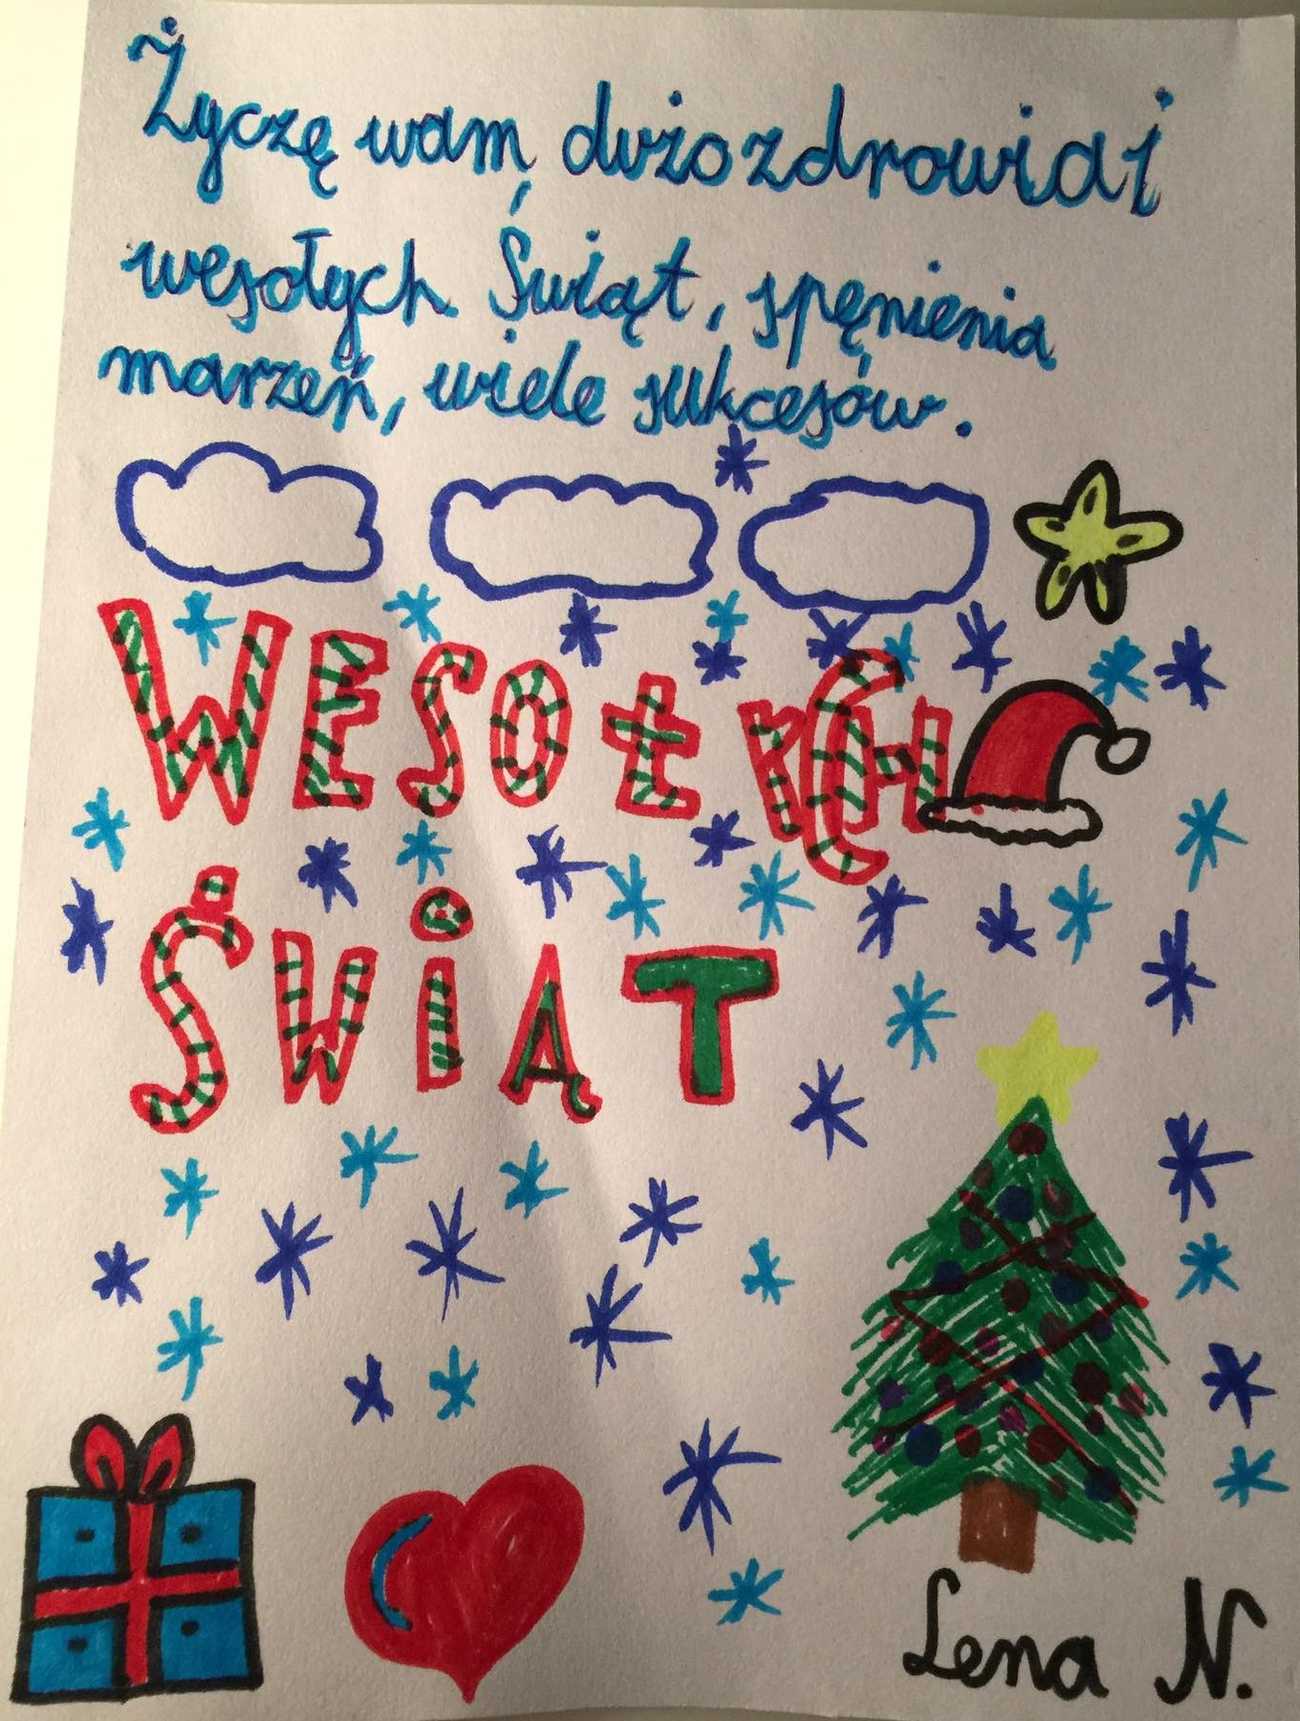 Życzę wam dużo zdrowia i
wesołych Świąt, spęnienia
marzeń, wiele sukcesów.
WESOŁYCH
ŚWIĄT
Lena N.